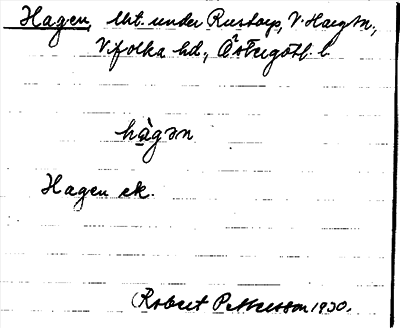 Hagen, lht. under Rustorp, V. Haegtn,
Vifolka hd., Östergötl. l.
hàgən
Hagen ek.
Robert Pettersson 1930.